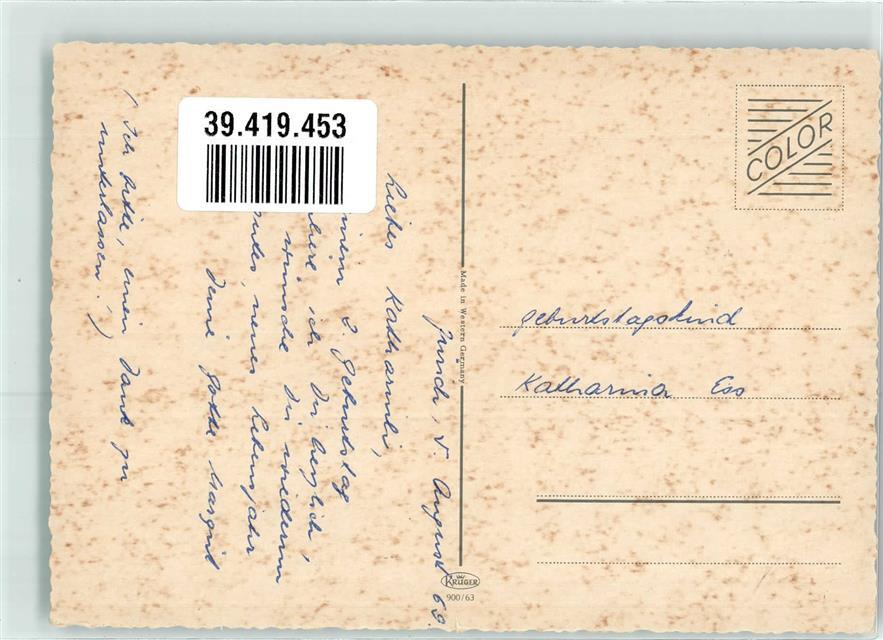 39.419.453
Zürich, 5. August 69.
Liebes Katharinli,
meim 2 Geburtstag
ich Dir herzlich,
wünsche Dir wiederum
neues Lebensjahr
Deine Gotte Margrit
(Ich bitte, einen Dank zu
unterlassen!)
Made in Western Germany
KRÜGER
900/63
COLOR
Geburtstagskind
Katharina Ess